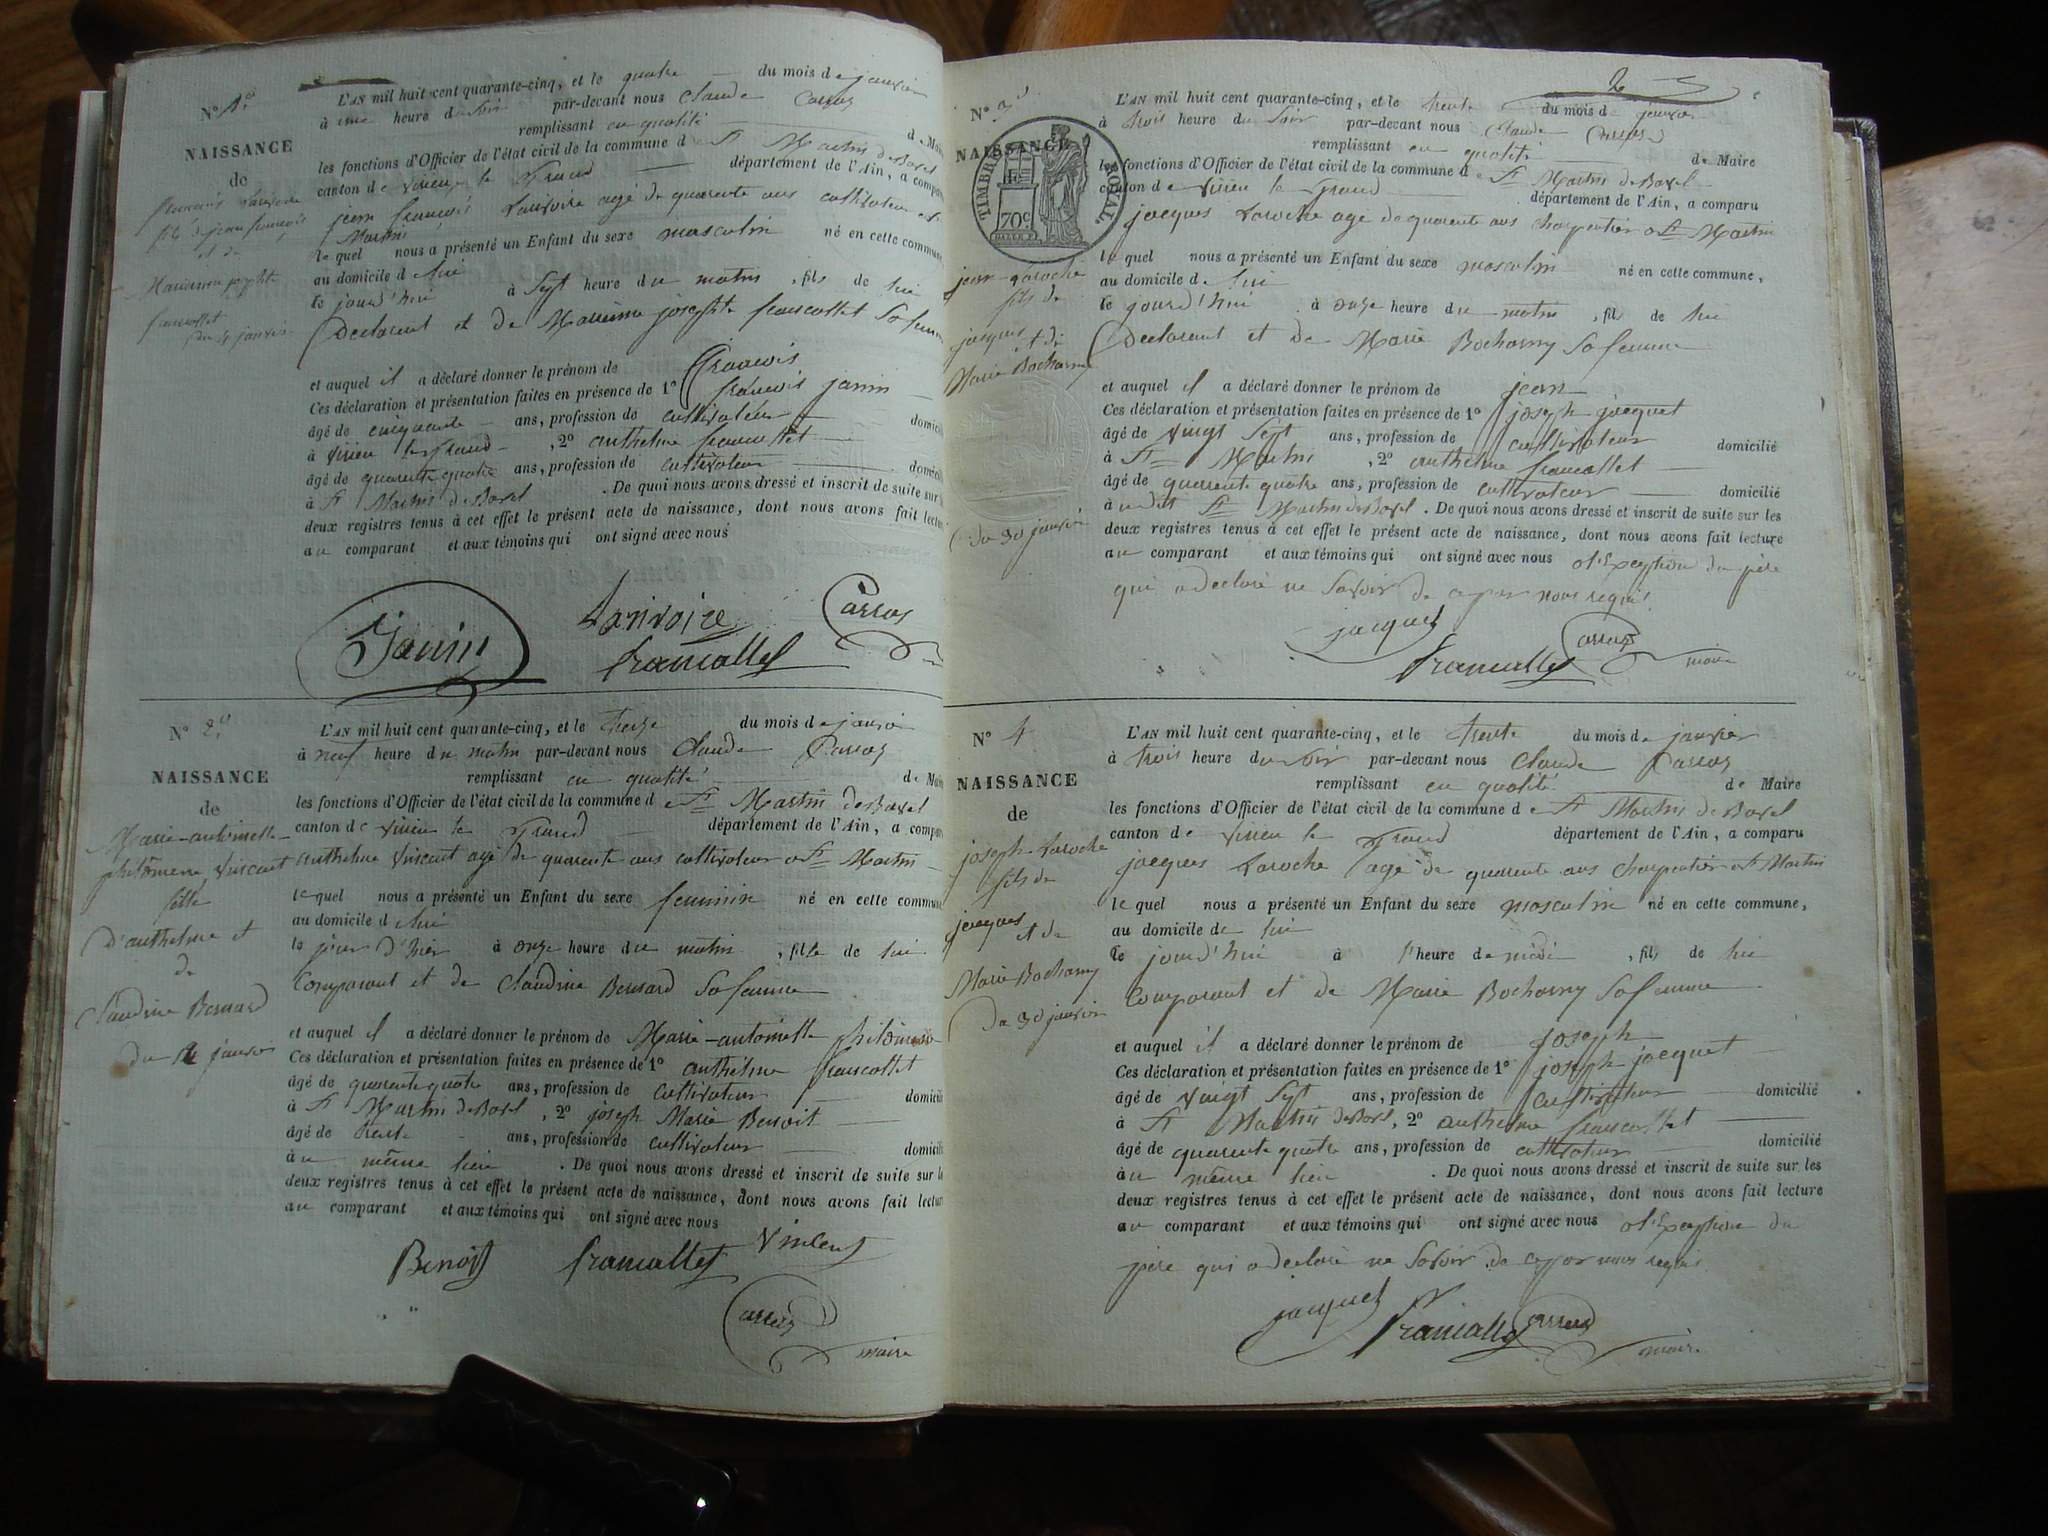 N° 1er
NAISSANCE
de
fils de jean françois
et de
françollet
du 4 janvier
L'AN mil huit cent quarante-cinq, et le quatre du mois de janvier
à une heure du soir par-devant nous Claude Carroz
remplissant en qualité de Maire
les fonctions d'Officier de l'état civil de la commune de St Martin de Bavel
canton de virieu le Grand département de l'Ain, a comparu
jean françois Lanvoire agé de quarante ans cultivateur a St
Martin
le quel nous a présenté un Enfant du sexe masculin né en cette commune
au domicile de lui
le jourd'hui à Sept heure du matin, fils de lui
Declarant et de josephte francollet Sa femme
et auquel il a déclaré donner le prénom de françois
Ces déclaration et présentation faites en présence de 1° françois janin
âgé de cinquante ans, profession de cultivateur domicilié
à virieu le Grand, 2° anthelme francollet
âgé de quarante quatre ans, profession de cultivateur domicilié
à St Martin de Bavel. De quoi nous avons dressé et inscrit de suite sur les
deux registres tenus à cet effet le présent acte de naissance, dont nous avons fait lecture
au comparant et aux témoins qui ont signé avec nous
Janin Lanvoire Carroz
francollet
N° 2
NAISSANCE
de
Marie-antoinette
philomene vincent
fille
d'anthelme et
de
Claudine Bernard
du 12 janvier
L'AN mil huit cent quarante-cinq, et le treize du mois de janvier
à neuf heure du matin par-devant nous Claude Carroz
remplissant en qualité de Maire
les fonctions d'Officier de l'état civil de la commune de St Martin de Bavel
canton de virieu le Grand département de l'Ain, a comparu
anthelme vincent agé de quarante ans cultivateur a St Martin
le quel nous a présenté un Enfant du sexe feminin né en cette commune
au domicile de lui
le jour d'hier à onze heure du matin, fille de lui
Comparant et de Claudine Bernard Sa femme
et auquel il a déclaré donner le prénom de Marie-antoinette philomene
Ces déclaration et présentation faites en présence de 1° anthelme francollet
âgé de quarante quatre ans, profession de cultivateur domicilié
à St Martin de Bavel, 2° joseph Marie Benoit
âgé de trente ans, profession de cultivateur domicilié
au même lieu. De quoi nous avons dressé et inscrit de suite sur les
deux registres tenus à cet effet le présent acte de naissance, dont nous avons fait lecture
au comparant et aux témoins qui ont signé avec nous
Benoit francollet vincent
Carroz
maire
2
N° 3
NAISSANCE
TIMBRE ROYAL
70c
jean Laroche
fils de
jacques et de
Marie Bocharny
du 30 janvier
L'AN mil huit cent quarante-cinq, et le trente du mois de janvier
à trois heure du soir par-devant nous Claude Carroz
remplissant en qualité de Maire
les fonctions d'Officier de l'état civil de la commune de St Martin de Bavel
canton de virieu le Grand département de l'Ain, a comparu
jacques Laroche agé de quarante ans charpentier a St Martin
le quel nous a présenté un Enfant du sexe masculin né en cette commune,
au domicile de lui
le jourd'hui à onze heure du matin, fils de lui
Declarant et de Marie Bocharny Sa femme
et auquel il a déclaré donner le prénom de jean
Ces déclaration et présentation faites en présence de 1° joseph jacquet
âgé de vingt Sept ans, profession de cultivateur domicilié
à St Martin, 2° anthelme francollet
âgé de quarante quatre ans, profession de cultivateur domicilié
à udit St Martin de Bavel. De quoi nous avons dressé et inscrit de suite sur les
deux registres tenus à cet effet le présent acte de naissance, dont nous avons fait lecture
au comparant et aux témoins qui ont signé avec nous a l'exception du père
qui a declaré ne Savoir de ce par nous requis
jacquet
francollet Carroz maire
N° 4
NAISSANCE
de
joseph Laroche
fils de
jacques
et de
Marie Bocharny
du 30 janvier
L'AN mil huit cent quarante-cinq, et le trente du mois de janvier
à trois heure du soir par-devant nous Claude Carroz
remplissant en qualité de Maire
les fonctions d'Officier de l'état civil de la commune de St Martin de Bavel
canton de virieu le Grand département de l'Ain, a comparu
jacques Laroche agé de quarante ans charpentier a St Martin
le quel nous a présenté un Enfant du sexe masculin né en cette commune,
au domicile de lui
le jourd'hui à l'heure de midi, fils de lui
Comparant et de Marie Bocharny Sa femme
et auquel il a déclaré donner le prénom de joseph
Ces déclaration et présentation faites en présence de 1° joseph jacquet
âgé de vingt Sept ans, profession de cultivateur domicilié
à St Martin de Bavel, 2° anthelme francollet
âgé de quarante quatre ans, profession de cultivateur domicilié
au même lieu. De quoi nous avons dressé et inscrit de suite sur les
deux registres tenus à cet effet le présent acte de naissance, dont nous avons fait lecture
au comparant et aux témoins qui ont signé avec nous a l'exception du
père qui a declaré ne Savoir de ce par nous requis
jacquet francollet Carroz
maire